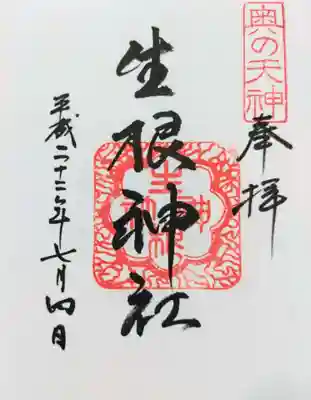 奥の天神
奉拝
生根神社
生根神社
平成二十二年七月四日